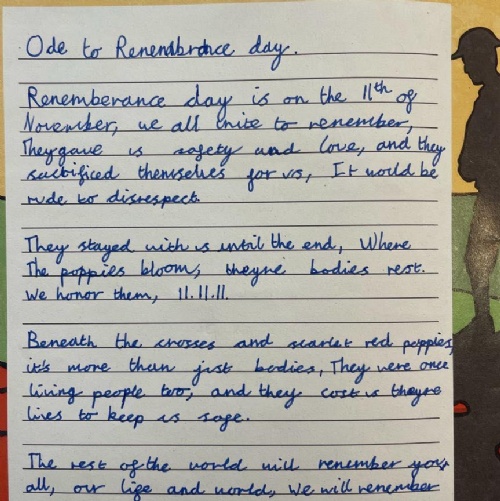 Ode to Renembrance day.
Renemberance day is on the 11th of
November, we all unite to renember,
They gave us safety and love, and they
sacrificed themselves for us, It would be
rude to disrespect.
They stayed with us until the end, Where
The poppies bloom, theyre bodies rest.
We honor them, 11.11.11.
Beneath the crosses and scarlet red poppies,
it's more than just bodies, They were once
living people too, and they cost theyre
lives to keep us safe.
The rest of the world will remember you
all, our life and world, We will remember